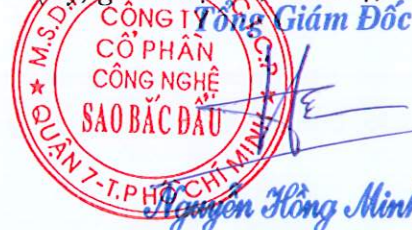 Tổng Giám Đốc
M.S.D
C.P
CÔNG TY
CỔ PHẦN
CÔNG NGHỆ
SAO BẮC ĐẨU
QUẬN 7-T.PHỐ CHÍ MINH
Nguyễn Hồng Minh